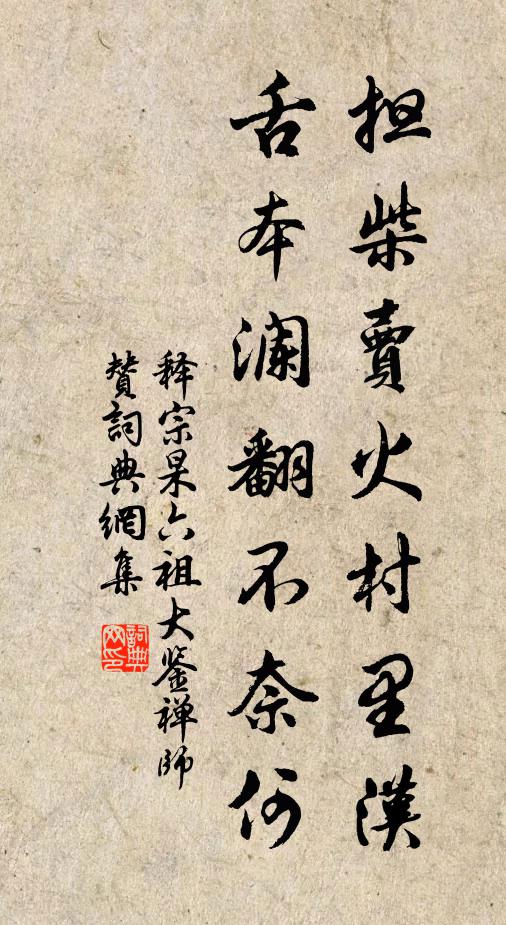 担柴賣火村里漢
舌本澜翻不奈何
释宗杲六祖大鉴禅师
赞詞典網集
詞典
网印